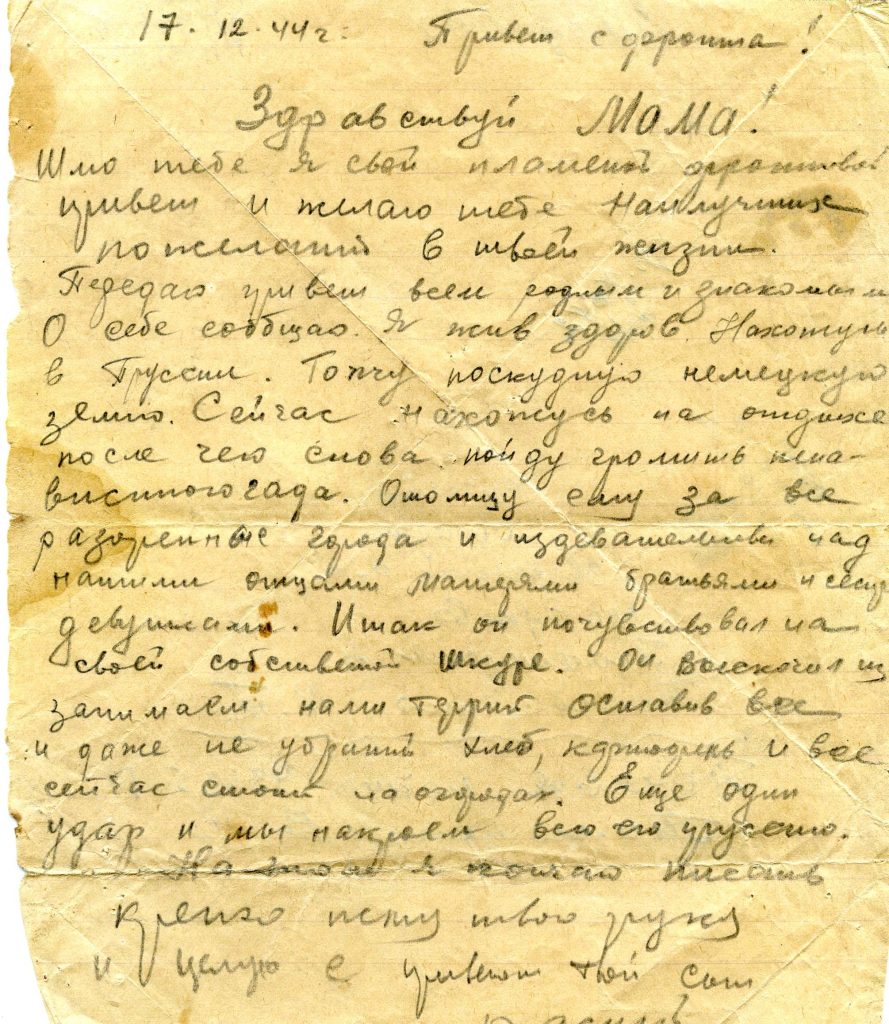 17. 12. 44 г. Привет с фронта!
Здравствуй Мама!
Шлю тебе я свой пламеной фронтовой
привет и желаю тебе наилучших
пожеланий в твоей жизни.
Передаю привет всем родным и знакомым
О себе сообщаю. Я жив здоров. Нахожусь
в Пруссии. Топчу поскудную немецкую
землю. Сейчас нахожусь на отдыхе
после чего снова пойду громить нена-
вистного гада. Отомщу ему за все
разоренные города и издевательства над
нашими отцами матерями братьями и
девушками. Итак он почувствовал на
своей собственой шкуре. Он выскочил из
занимаем нами террит оставив все
и даже не убраный хлеб, картофель и все
сейчас стоит на огородах. Еще один
удар и мы накроем всю его пруссию.
На этом я кончаю писать
Крепко жму твою руку
и целую с приветом твой сын